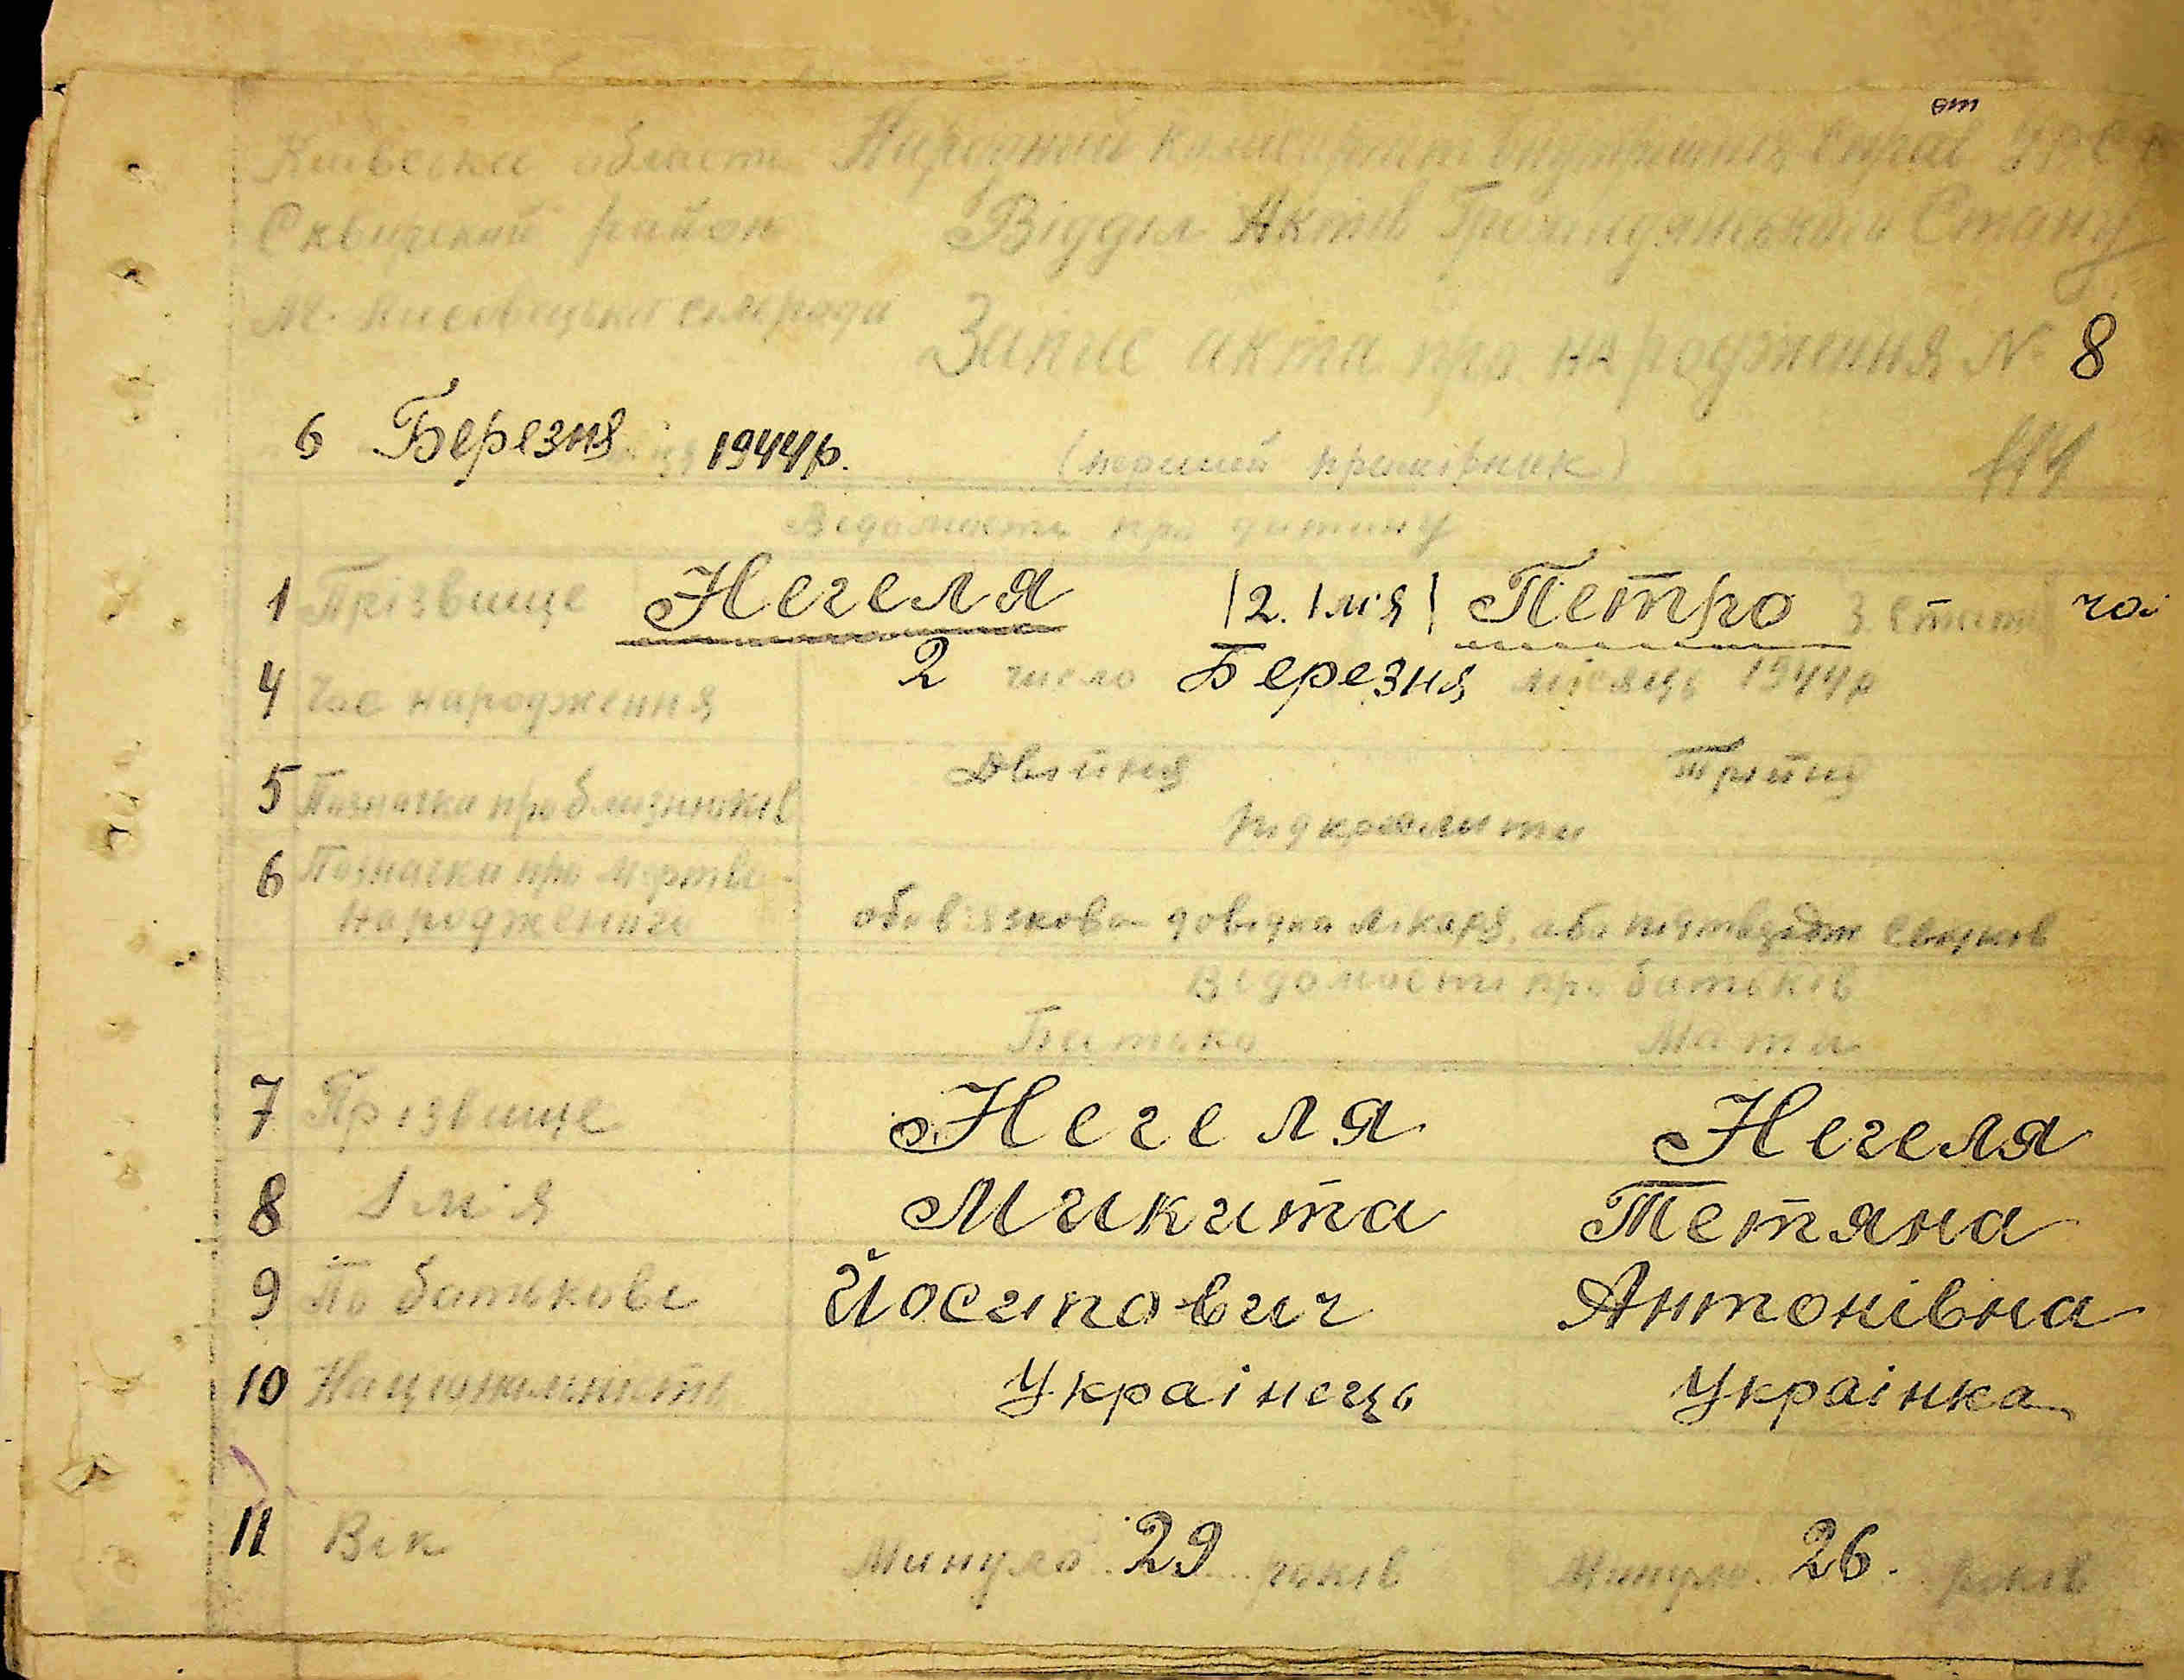 Київська область Народний комісаріат Внутрішніх Справ УРСР
Сквирський район Відділ Актів Громадянського Стану
сільрада
Запис акта про народження № 8
6 Березня 1944 р.
(перший примірник)
Відомості про дитину
1 Прізвище Негеля |2. Імя| Петро 3. Стать чол
4 Час народження 2 число Березня місяць 1944 р
5 Позначки про близнюків Двійня Трійня
Підкреслити
6 Позначки про мертво-
народженого обовязкова довідка лікаря, або свідків
Відомості про батьків
Батько Мати
7 Прізвище Негеля Негеля
8 Імя Микита Тетяна
9 По батькові Йосипович Антонівна
10 Національність Українець Українка
11 Вік Минуло 29 років Минуло 26. років